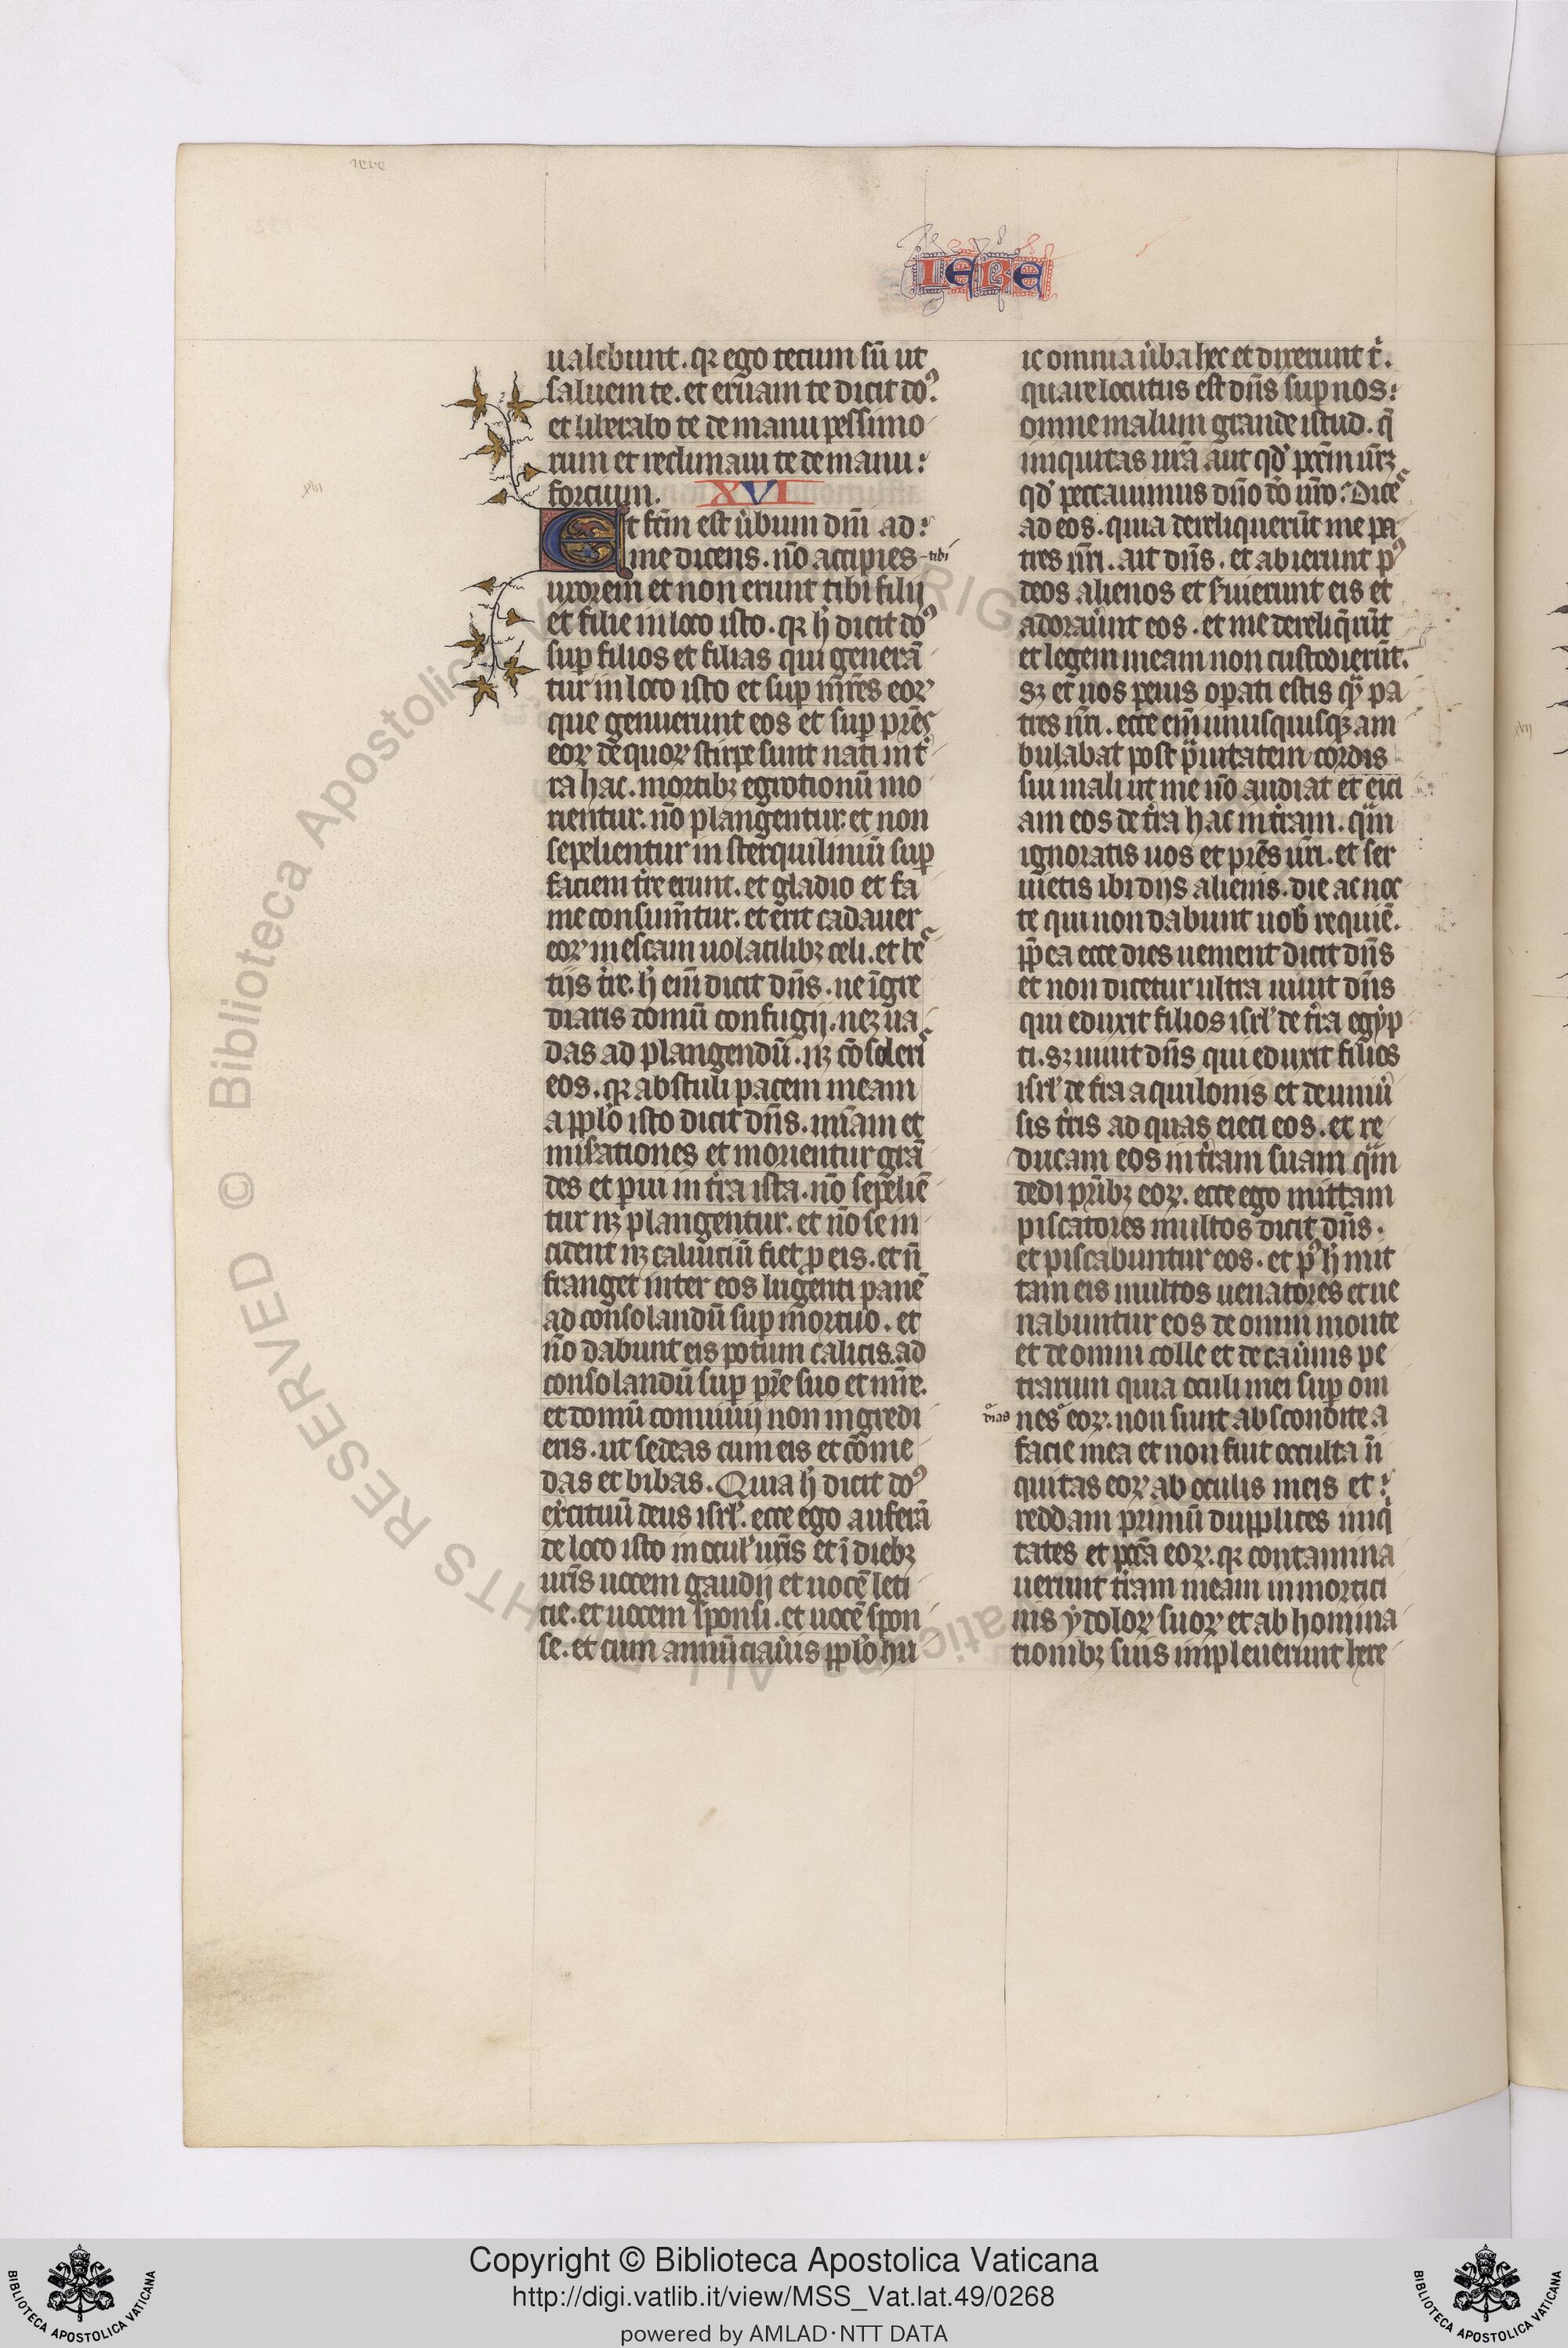 iere
IERE
ualebunt. qꝛ ego tecum sū ut
saluem te. et eruam te dicit doꝰ.
et liberabo te de manu pessimo
rum et redimam te de manu:
forcium. XVI
Et fc̄m est u̇bum dn̄i ad:
me dicens. nō accipies tibi
uxorem et non erunt tibi filij
et filie in loco isto. qꝛ h̄ dicit doꝰ
sup̱ filios et filias qui generā
tur in loco isto et sup̱ mr̄es eoꝝ
que genuerunt eos et sup̱ pr̄es
eoꝝ de quoꝝ stirpe sunt nati in t̓
ra hac. mortibꝫ egrotionū mo
rientur. nō plangentur. et non
sepelientur in sterquiliniū sup̱
faciem t̓re erunt. et gladio et fa
me consum̄tur. et erit cadauer
eoꝝ in escam uolatilibꝫ celi. et bes
tijs t̓re. h̄ eni̅ dicit dn̄s. ne īgre
diaris domū confugij. neqꝫ ua
das ad plangendū. nꝫ cōsoleris
eos. qꝛ abstuli pacem meam
a pp̄lo isto dicit dn̄s. mīam et
mis̓ationes et morientur grā
des et p̱ui in t̓ra ista. nō sepeliē
tur nꝫ plangentur. et nō se in
cident nꝫ caluiciū fiet p̱ eis. et n̄
franget inter eos lugenti panē
ad consolandū sup̱ mortuo. et
nō dabunt eis potum calicis. ad
consolandū sup̱ pr̄e suo et mr̄e.
et domū conuiuij non ingredi
eris. ut sedeas cum eis et cōme
das et bibas. Quia h̄ dicit doꝰ
ex̓cituū deus isrl̓. ecce ego auferā
de loco isto in ocul̓ ur̄is et ī diebꝫ
ur̄is uocem gaudij et uocē leti
cie. et uocem sponsi. et uocē spon
se. et cum annūciau̇is pp̄lo hu
ic omnia u̇ba hec et dixerunt t̓.
quare locutus est dn̄s sup̱ nos:
omne malum grande istud. q̄
iniquitas nr̄a aut qd̓ pcc̄m nr̄ꝫ
qd̓ peccauimus dn̄o do̓ nr̄o. Dices
ad eos. quia dereliquerūt me pa
tres ur̄i. ait dn̄s. et abierunt pꝰ
deos alienos et s̓uierunt eis et
adorau̇unt eos. et me dereliq̄rūt
et legem meam non custodierūt.
sꝫ et uos peius op̱ati estis q̄ pa
tres ur̄i. ecce eni̅ unusquisqꝫ am
bulabat post p̓uitatem cordis
sui mali ut me nō audiat et eici
am eos de t̓ra hac in t̓ram. q̄m
ignoratis uos et pr̄es ur̄i. et ser
uietis ibi dijs alienis. die ac noc
te qui non dabunt uob̓ requiē.
pp̄ea ecce dies uenient dicit dn̄s
et non dicetur ultra uiuit dn̄s
qui eduxit filios isrl̓ de t̓ra egyp
ti. sꝫ uiuit dn̄s qui eduxit filios
isrl̓ de t̓ra aquilonis et de uniu̇
sis t̓ris ad quas eieci eos. et re
ducam eos in t̓ram suam q̄m
dedi pr̄ibꝫ eoꝝ. ecce ego mittam
piscatores multos dicit dn̄s.
et piscabuntur eos. et pꝰ h̄ mit
tam eis multos uenatores et ue
nabuntur eos de omni monte
et de omni colle et de cau̇nis pe
trarum quia oculi mei sup̱ om
nes uias eoꝝ. non sunt abscondite a
facie mea et non fuit occulta in̄
quitas eoꝝ ab oculis meis et:
reddam primū dupplices iniq̓
tates et pcc̄a eoꝝ. qꝛ contamina
uerunt t̓ram meam in mortici
nis ydoloꝝ suoꝝ et abhomina
tionibꝫ suis impleuerunt here
Copyright © Biblioteca Apostolica Vaticana
http://digi.vatlib.it/view/MSS_Vat.lat.49/0268
powered by AMLAD·NTT DATA
BIBLIOTECA APOSTOLICA VATICANA
BIBLIOTECA APOSTOLICA VATICANA